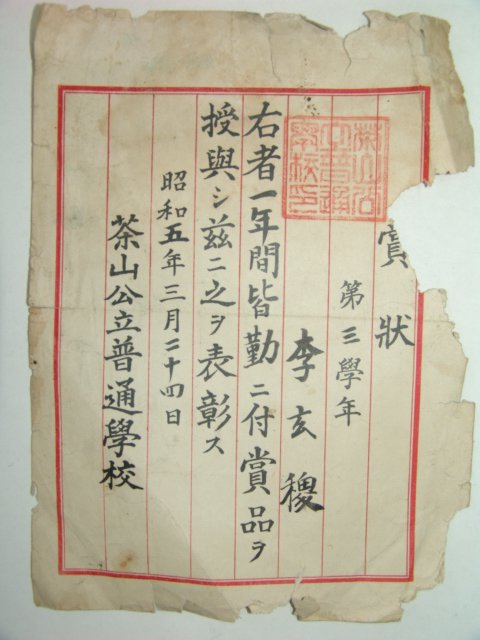 賞狀
第三學年
李玄稷
右者一年間皆勤ニ付賞品ヲ
授與シ茲ニ之ヲ表彰ス
昭和五年三月二十四日
茶山公立普通學校
茶山公
立普通
學校印